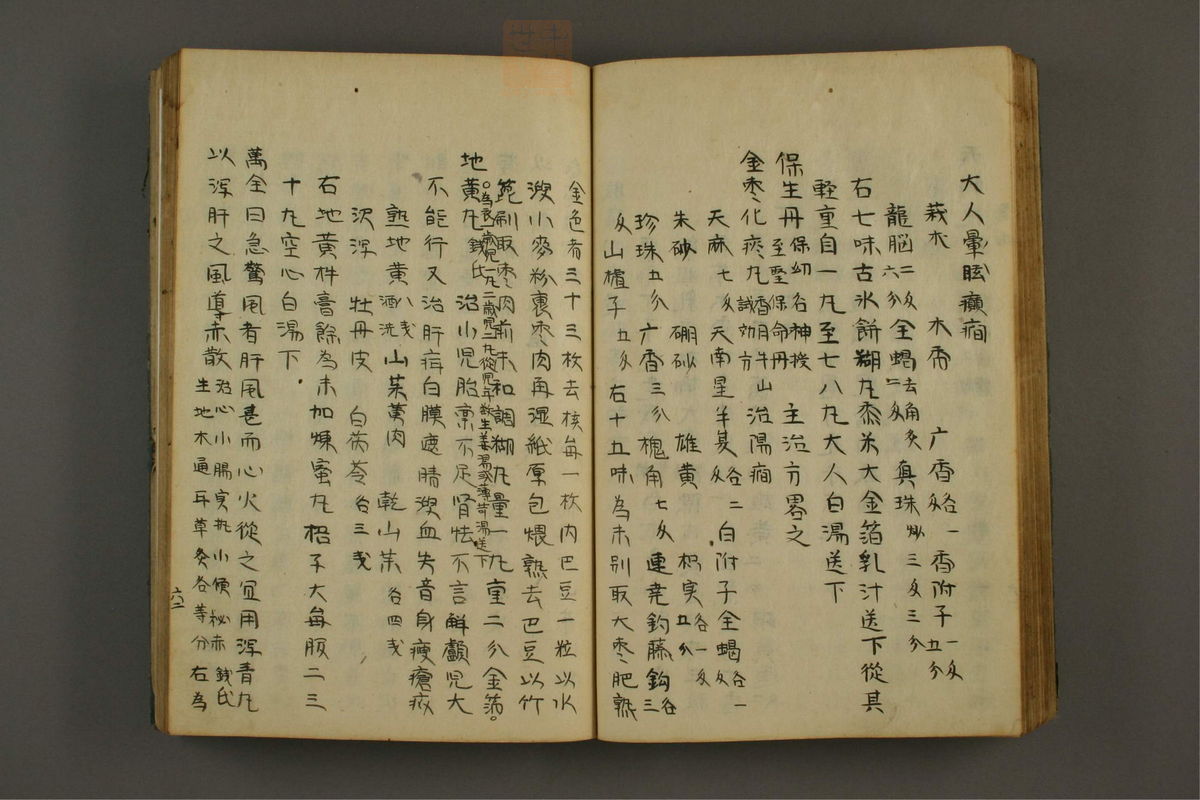 大人暈眩癲癇
莪朮 木香 广香各一匁 香附子一匁五分
龍脳二匁六分 全蝎去角二匁 真珠炒三匁三分
右七味古氷餅糊丸黍米大金箔乳汁送下從其
輕重自一丸至七八丸大人白湯送下
保生丹保幼各神授至聖保命丹 主治方畧之
金枣化痰丸香月牛山誠効方 治陽癇
天麻七匁 天南星 半夏各二匁 白附子 全蝎各一匁
朱砂 硼砂 雄黄各一匁 枳実五分
珍珠五分 广香三分 槐角七匁 連尭 釣藤鈎各三
匁 山樝子五匁 右十五味為末別取大枣肥熟
金色者三十三枚去核每一枚内巴豆一粒以水
溲小麥粉裹枣肉再湿紙厚包煨熟去巴豆以竹
篦刷取枣肉前末和調糊丸量一丸重二分金箔
為衣一歳児一丸二歳児二丸從児年数生姜湯或薄苛湯送下
地黄丸錢氏 治小児胎禀不足肾怯不言解顱児大
不能行又治肝疳白膜遮睛溲血失音身瘦瘡疥
熟地黄八戔酒洗 山茱萸肉 乾山茱各四戔
沢泻 牡丹皮 白茯苓各三戔
右地黄杵膏餘為末加煉蜜丸梧子大每服二三
十丸空心白湯下
萬全曰急驚風者肝風甚而心火從之宜用泻青丸
以泻肝之風導赤散治心小腸実熱小便秘赤錢氏
生地木通耳草炙各等分右為
六二